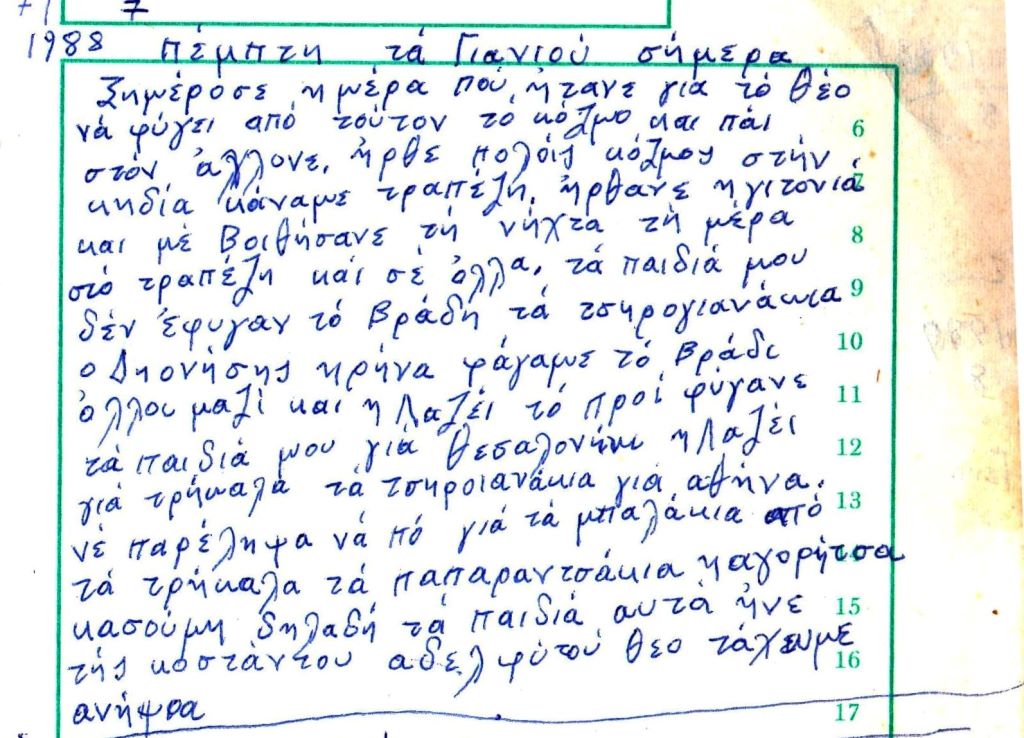 7
1988 πέμπτη τά Γιανιού σήμερα
ξημέροσε η μέρα πού ήτανε γιά τό θέο
νά φύγει από τούτον τό κόζμο και πάι 6
στόν άλλονε. ήρθε πολόις κόζμος στήν
κηδία κάναμε τραπέζη. ήρθανε η γιτονιά 7
και μέ βοιθήσανε τή νήχτα τή μέρα 8
στό τραπέζη καί σέ όλλα. τά παιδιά μου
δέν έφυγαν τό βράδη τά τσηρογιανάκια 9
ο Δηονήσης ηρήνα φάγαμε τό βράδι 10
όλλοι μαζί και η Λαζέι τό προί φύγανε 11
τά παιδιά μου γιά θεσαλονήκι η Λαζέι 12
γιά τρήκαλα τά τσηροιανάκια γιά αθήνα.
νέ παρέληψα νά πό γιά τά μπαλάκια από 13
τά τρήκαλα τά παπαραντσάκια η αγορήτσα
κασούμη δηλαδή τά παιδιά αυτά ήνε 15
τής κοστάντου αδελφύτού θεο τάχευμε 16
ανήψσα 17